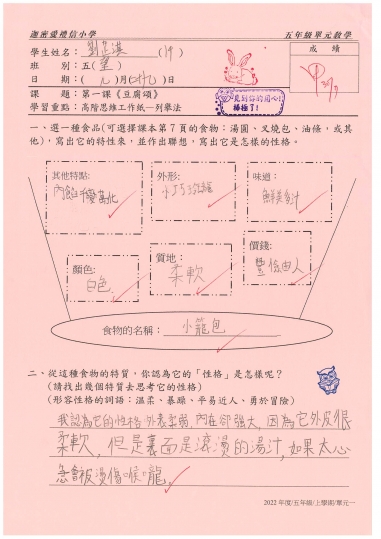 迦密愛禮信小學 五年級單元教學
學生姓名：劉芷淇(19) 成績
班 別：五(望) 甲
日 期：(九)月(廿九)日
課 題：第一課《豆腐頌》 見到你的用心！
學習重點：高階思維工作紙—列舉法 棒極了！
一、選一種食品(可選擇課本第 7 頁的食物：湯圓、叉燒包、油條，或其
他)，寫出它的特性來，並作出聯想，寫出它是怎樣的性格。
其他特點: 外形: 味道：
內餡千變萬化 小巧玲瓏 鮮美多汁
顏色: 質地： 價錢:
白色 柔軟 豐儉由人
食物的名稱： 小籠包
二、從這種食物的特質，你認為它的「性格」是怎樣呢？
(請找出幾個特質去思考它的性格)
(形容性格的詞語：溫柔、暴躁、平易近人、勇於冒險)
我認為它的性格外表柔弱，內在卻強大，因為它外皮很
柔軟，但是裏面是滾燙的湯汁，如果太心
急會被燙傷喉嚨。
2022 年度/五年級/上學期/單元一